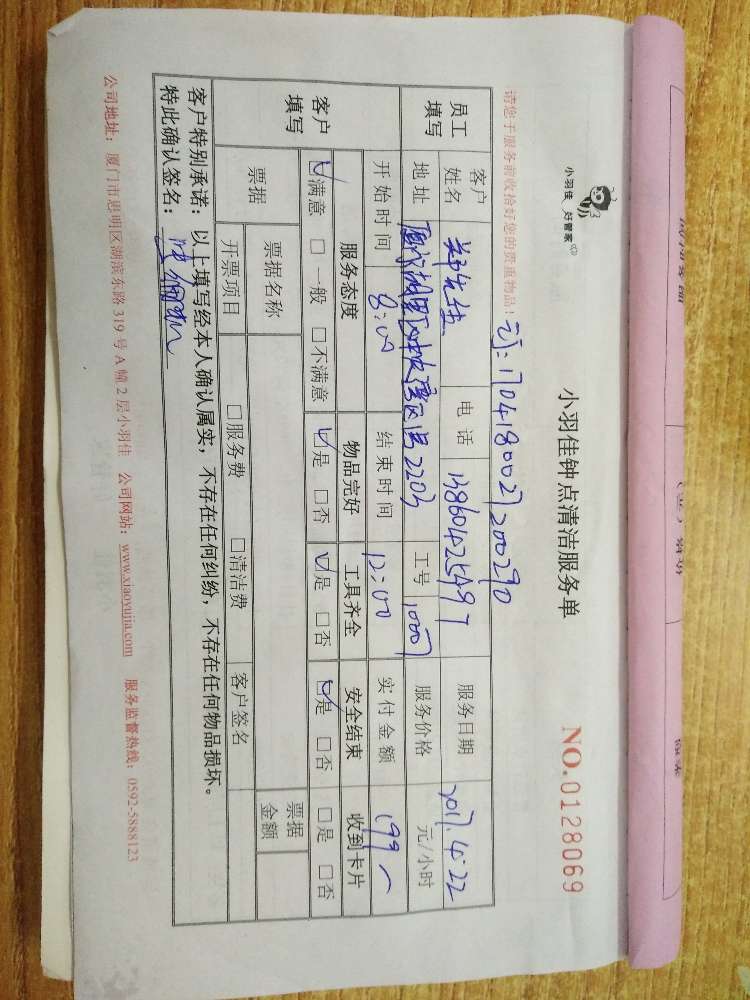 小羽佳 好管家
小羽佳钟点清洁服务单
NO.0128069
请您于服务前收拾好您的贵重物品!
1704180027200290
员工填写 客户姓名 郑先生 电话 13860425497 服务日期 2017.4.22
地址 2203 工号 10007 服务价格 元/小时
开始时间 8:00 结束时间 12:00 实付金额 199
客户填写 服务态度 物品完好 工具齐全 安全结束 收到卡片
☑满意 □一般 □不满意 ☑是 □否 ☑是 □否 ☑是 □否 □是 □否
票据 票据名称 票据金额
开票项目 □服务费 □清洁费 客户签名
客户特别承诺：以上填写经本人确认属实，不存在任何纠纷，不存在任何物品损坏。
特此确认签名：
公司地址：厦门市思明区湖滨东路 319 号 A 幢 2 层小羽佳 公司网站：www.xiaoyujia.com 服务监督热线：0592-5888123